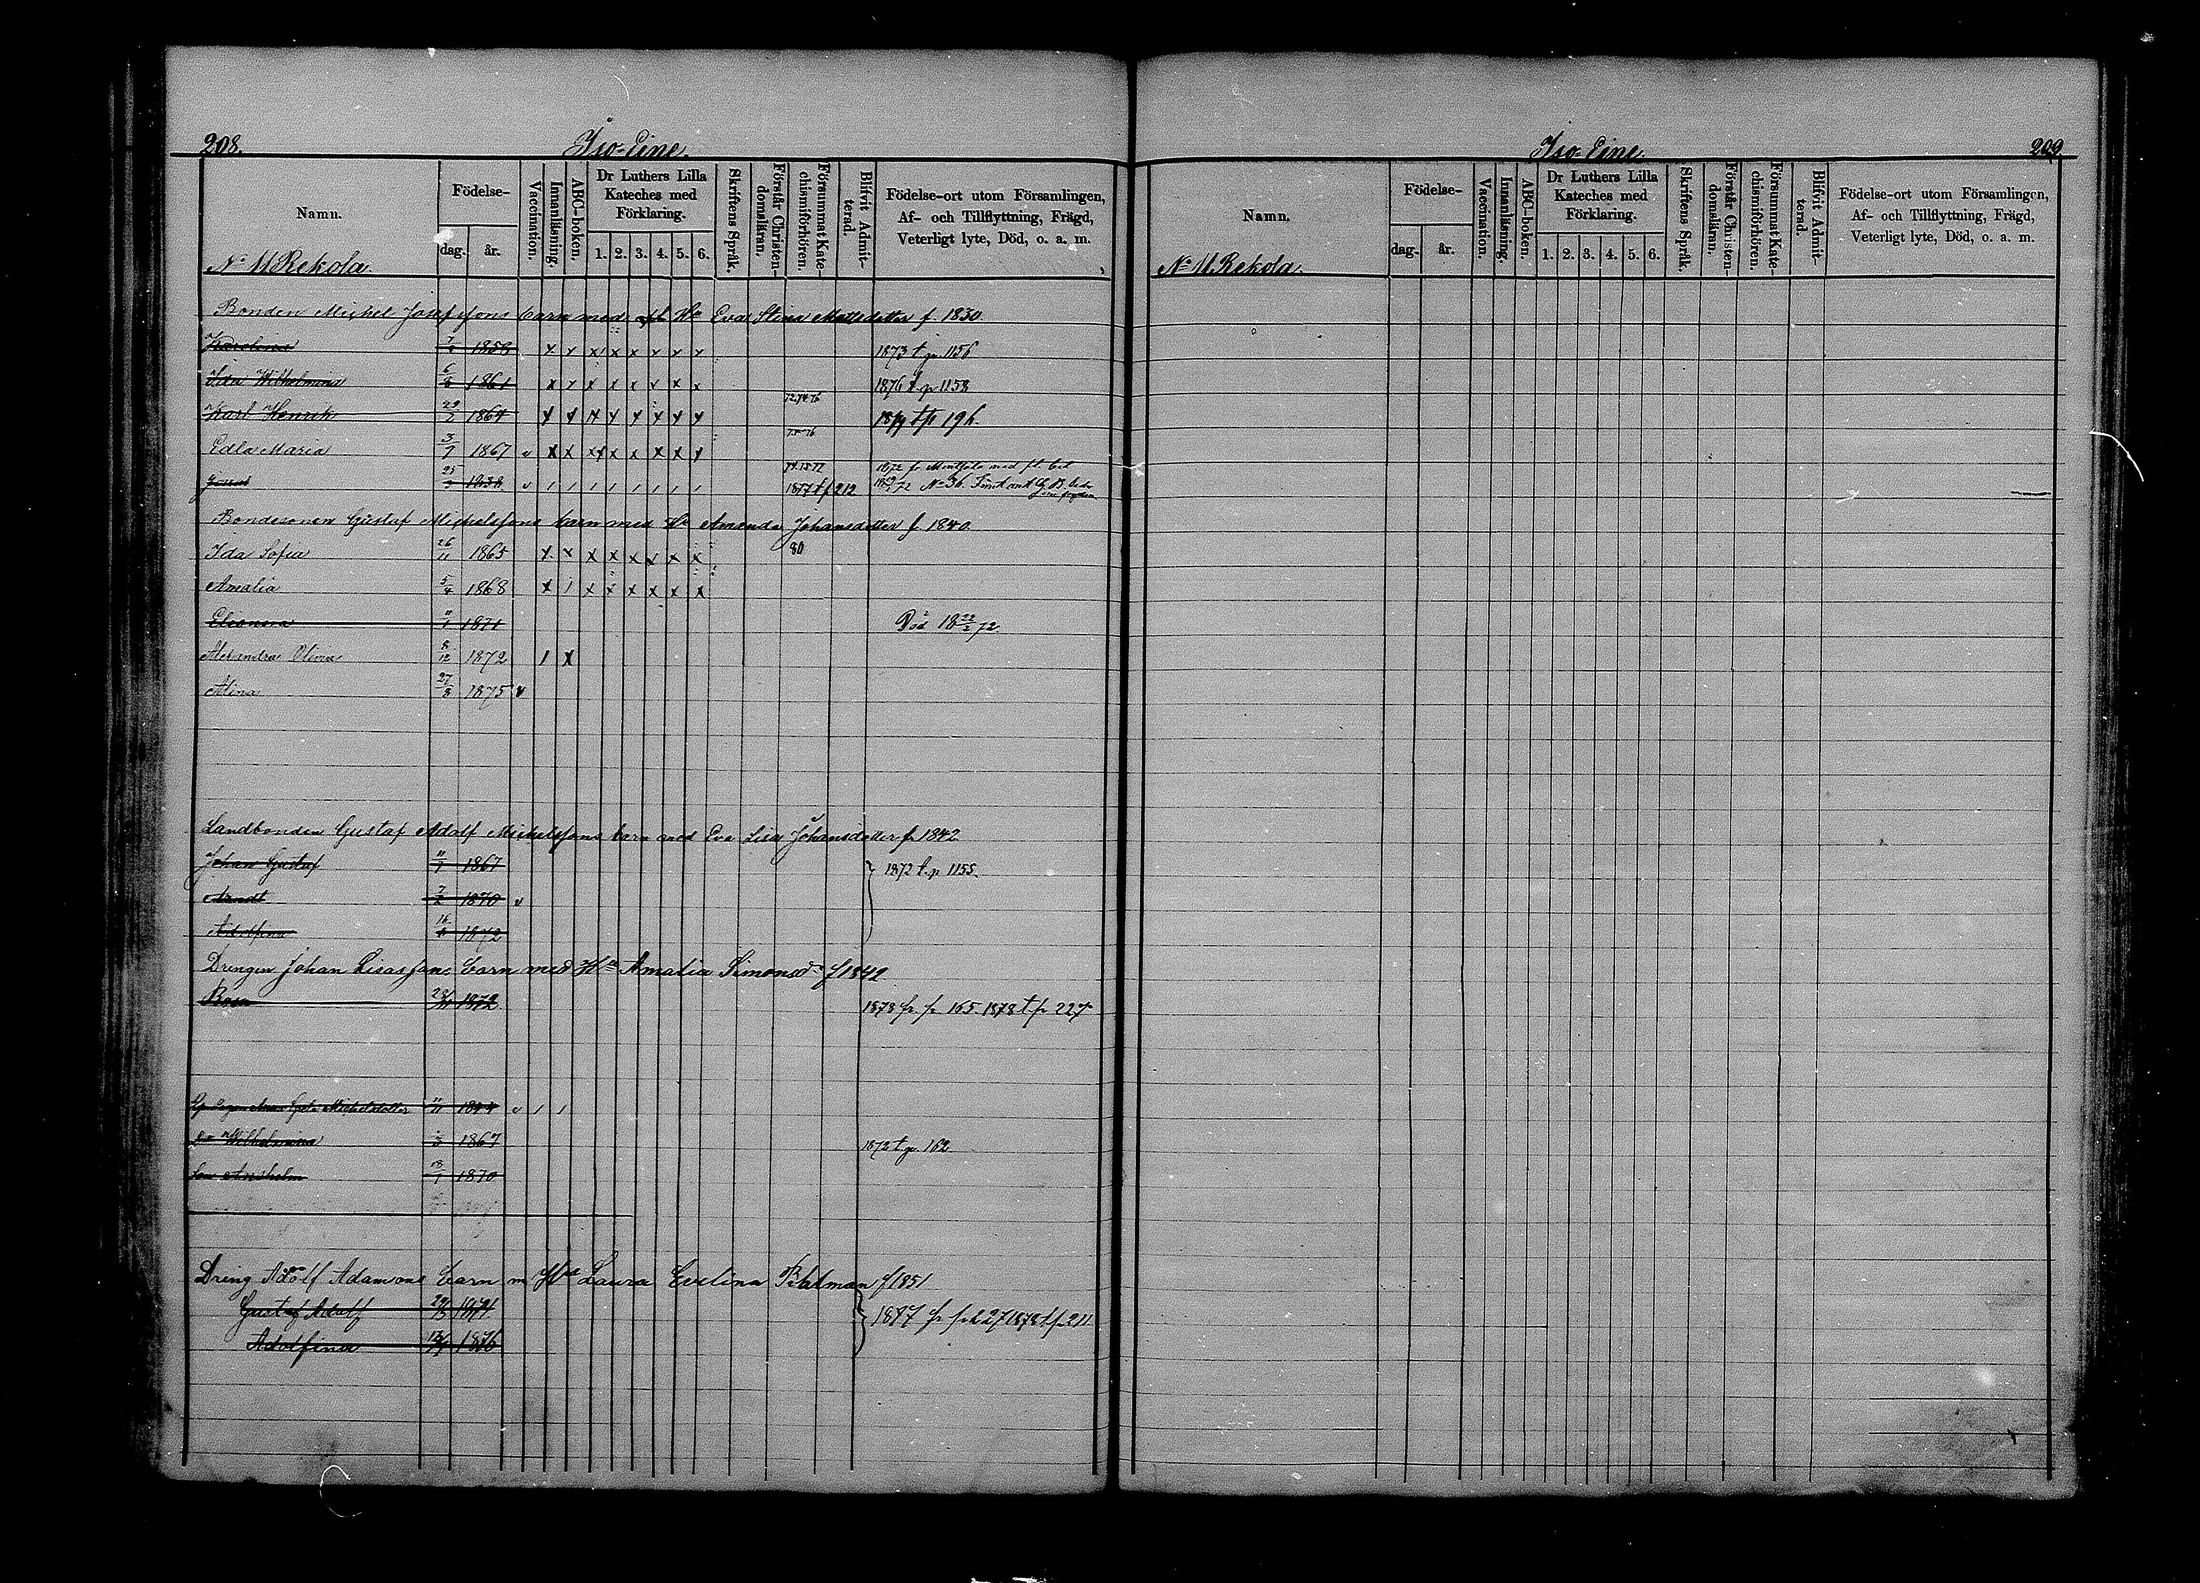 208.
Iso-Eine.
Namn.
Födelse-
dag.
år.
Vaccination.
Innanläsning.
ABC-boken.
Dr Luthers Lilla Kateches med Förklaring.
1. 2. 3. 4. 5. 6.
Skriftens Språk.
Förstår Christendomsläran.
Försummat Katechismiförhören.
Blifvit Admitterad.
Födelse-ort utom Församlingen,
Af- och Tillflyttning, Frägd,
Veterligt lyte, Död, o. a. m.
No 11 Rekola
Bonden Michel Josefssons barn med Hu Eva Stina Mattsdotter f. 1830.
Karolina 1858 1873 t. p. 1156
Ida Wilhelmina 1861 1876 t. p 1158
72.74.76
Karl Henrik 29/2 1864 t p 196.
75-76
Edla Maria 3/7 1867
74.75.77
1877 t p 212 No 36.
Bondesonen Gustaf Michelssons barn med Hu Amanda Johansdotter f 1840.
Ida Sofia 26/11 1865 80
Amalia 5/4 1868
Elionora 11/1 1871 Död 18 22/2 72.
Alexandra Olivia 8/12 1872
Alina 27/8 1875
Landbonden Gustaf Adolf Michelssons barn med Eva Lisa Johansdotter f. 1842
Johan Gustaf 1867 1872 t. p 1155.
Arndt 7/2 1870
Adolfina 1872
Drengen Johan Lisassons barn med Hu Amalia Simonsd f 1842
Rosa 1872 1878 fr p. 165. 1878 t p 227
Michelsdotter
Wilhelmina 1867 1872 t p. 162.
Son Anshelm 1870
Dräng Adolf Adamsons barn m Hu Laura Evelina f 1851
Gustaf Adolf 1877 fr p. 227 1878 t p. 211.
Adolfina 1876
Iso-Eine.
209.
Namn.
Födelse-
dag.
år.
Vaccination.
Innanläsning.
ABC-boken.
Dr Luthers Lilla Kateches med Förklaring.
1. 2. 3. 4. 5. 6.
Skriftens Språk.
Förstår Christendomsläran.
Försummat Katechismiförhören.
Blifvit Admitterad.
Födelse-ort utom Församlingen,
Af- och Tillflyttning, Frägd,
Veterligt lyte, Död, o. a. m.
No 11 Rekola.